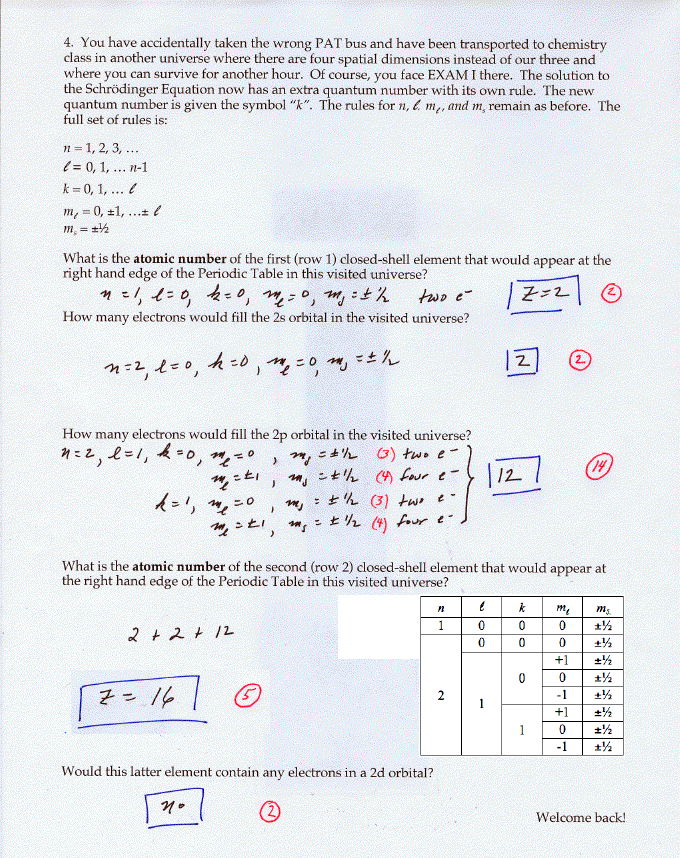 4. You have accidentally taken the wrong PAT bus and have been transported to chemistry
class in another universe where there are four spatial dimensions instead of our three and
where you can survive for another hour. Of course, you face EXAM I there. The solution to
the Schrödinger Equation now has an extra quantum number with its own rule. The new
quantum number is given the symbol "k". The rules for n, ℓ, mℓ, and ms remain as before. The
full set of rules is:
n = 1, 2, 3, …
ℓ = 0, 1, … n-1
k = 0, 1, … ℓ
mℓ = 0, ±1, …± ℓ
ms = ±½
What is the atomic number of the first (row 1) closed-shell element that would appear at the
right hand edge of the Periodic Table in this visited universe?
n = 1, ℓ = 0, k = 0, mℓ = 0, ms = ±½ two e⁻ Z = 2 (2)
How many electrons would fill the 2s orbital in the visited universe?
n = 2, ℓ = 0, k = 0, mℓ = 0, ms = ±½ 2 (2)
How many electrons would fill the 2p orbital in the visited universe?
n = 2, ℓ = 1, k = 0, mℓ = 0, ms = ±½ (3) two e⁻
mℓ = ±1, ms = ±½ (4) four e⁻ 12 (14)
k = 1, mℓ = 0, ms = ±½ (3) two e⁻
mℓ = ±1, ms = ±½ (4) four e⁻
What is the atomic number of the second (row 2) closed-shell element that would appear at
the right hand edge of the Periodic Table in this visited universe?
2 + 2 + 12
Z = 16 (5)
n ℓ k mℓ ms
1 0 0 0 ±½
0 0 0 ±½
+1 ±½
0 0 ±½
2 1 -1 ±½
+1 ±½
1 0 ±½
-1 ±½
Would this latter element contain any electrons in a 2d orbital?
no (2)
Welcome back!